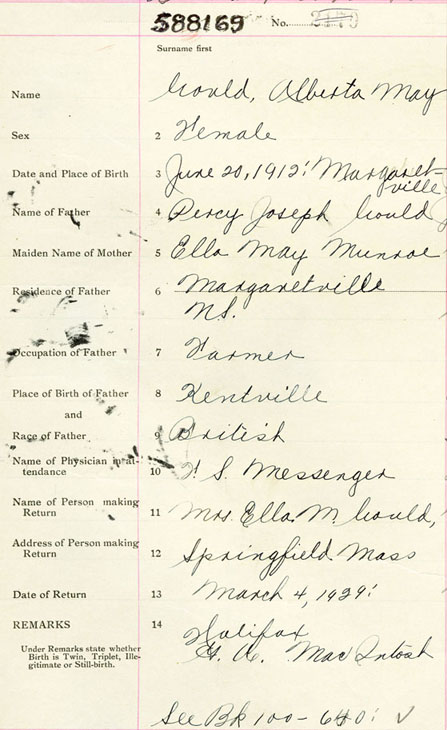 588169 No. 2170
Surname first
Name Gould, Alberta May
Sex 2 Female
Date and Place of Birth 3 June 20, 1912: Margaret-
ville
Name of Father 4 Percy Joseph Gould
Maiden Name of Mother 5 Ella May Munroe
Residence of Father 6 Margaretville
N.S.
Occupation of Father 7 Farmer
Place of Birth of Father 8 Kentville
and
Race of Father 9 British
Name of Physician in at-
tendance 10 S. Messenger
Name of Person making
Return 11 Mrs. Ella M. Gould,
Address of Person making
Return 12 Springfield Mass
Date of Return 13 March 4, 1929:
REMARKS 14 Halifax
Under Remarks state whether
Birth is Twin, Triplet, Ille-
gitimate or Still-birth.
A. Mac Intosh
See Bk 100 - 640: ✓